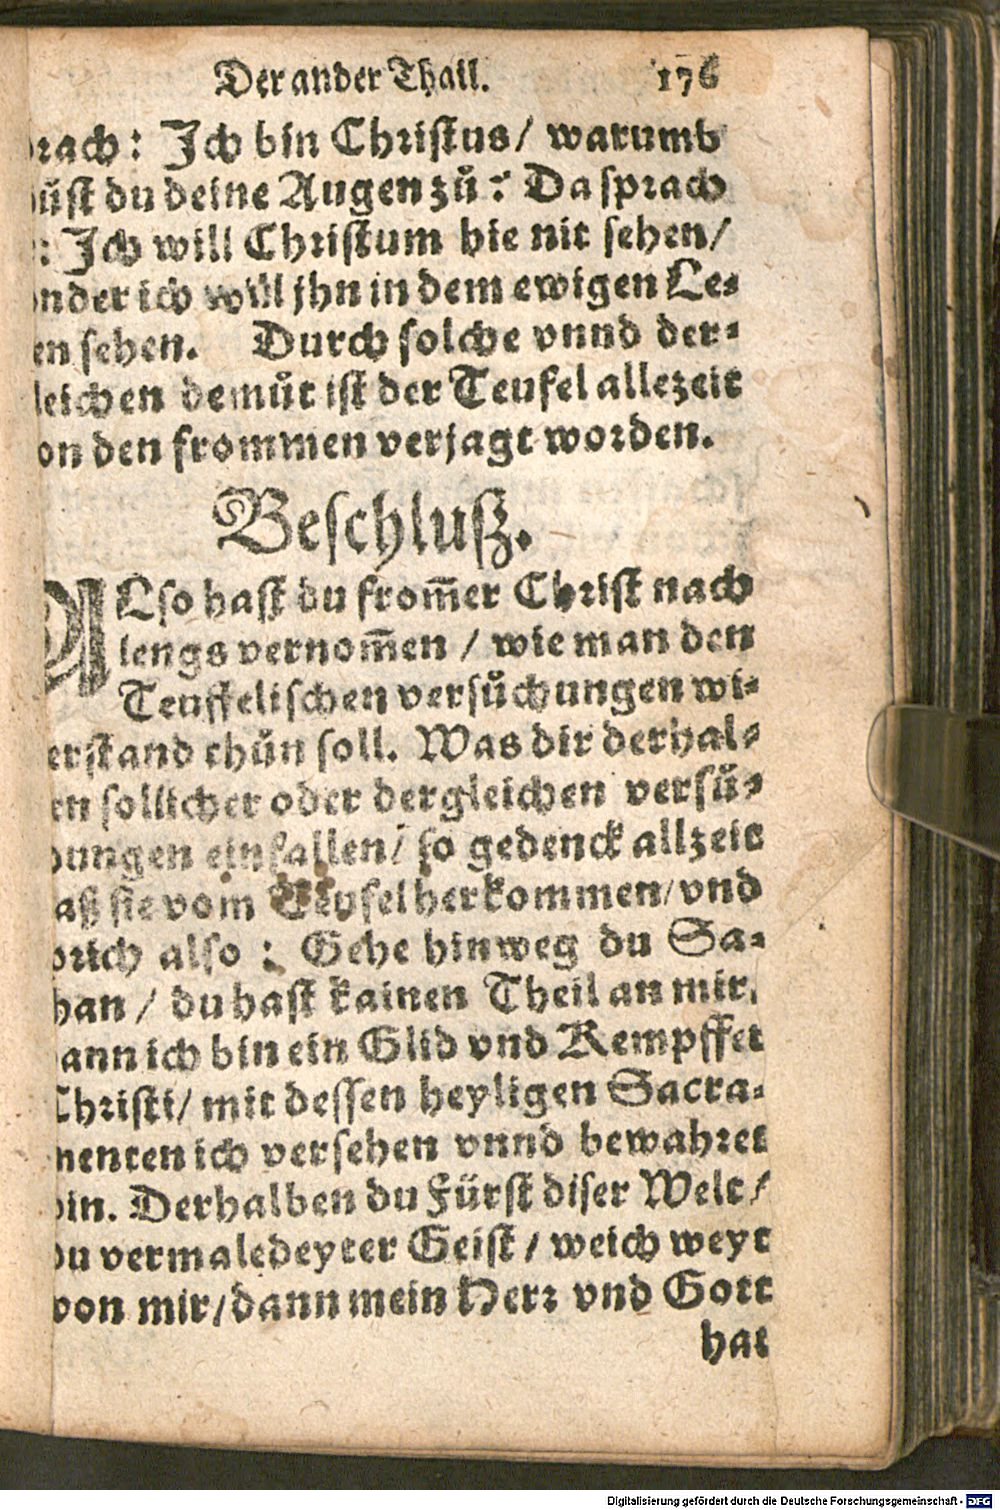 Der ander Thail. 176
rach: Jch bin Christus/ warumb
ůst du deine Augen zů: Da sprach
: Jch will Christum hie nit sehen/
nder ich will jhn in dem ewigen Le-
en sehen. Durch solche vnnd der-
leichen demůt ist der Teufel allezeit
on den frommen verjagt worden.
Beschlusz.
ALso hast du from̃er Christ nach
lengs vernom̃en / wie man den
Teuffelischen versůchungen wi-
erstand thůn soll. Was dir derhal-
en sollicher oder dergleichen versů-
ungen einfallen/ so gedenck allzeit
aß sie vom Teufel herkommen/ vnd
prich also : Gehe hinweg du Sa-
han / du hast kainen Theil an mir,
ann ich bin ein Glid vnd Kempffer
Christi/ mit dessen heyligen Sacra-
menten ich versehen vnnd bewahret
bin. Derhalben du Fürst diser Welt/
du vermaledeyter Geist / weich weyt
von mir/ dann mein Herz vnd Gott
hat
Digitalisierung gefördert durch die Deutsche Forschungsgemeinschaft - DFG